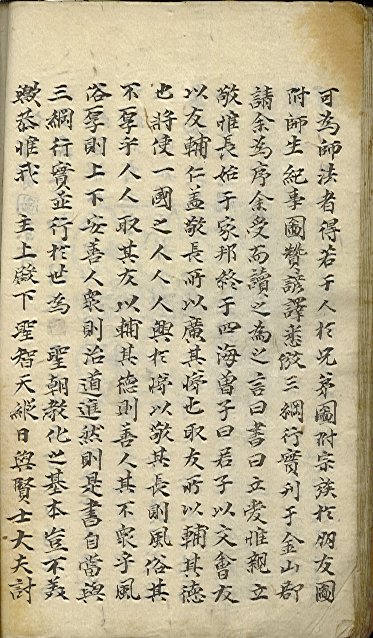 可為師法者得若干人於兄弟圖附宗族於朋友圖
附師生紀事圖贊諺譯悉倣三綱行實刊于金山郡
請余為序余受而讀之為之言曰書曰立愛惟親立
敬惟長始于家邦終于四海曾子曰君子以文會友
以友輔仁盖敬長所以廣其悌也取友所以輔其德
也將使一國之人人人興於悌以敬其長則風俗其
不厚乎人人取其友以輔其德則善人其不衆乎風
俗厚則上下安善人衆則治道進然則是書自當與
三綱行實並行於世為 聖朝教化之基本豈不美
歟恭惟我 主上殿下聖智天縱日與賢士大夫討